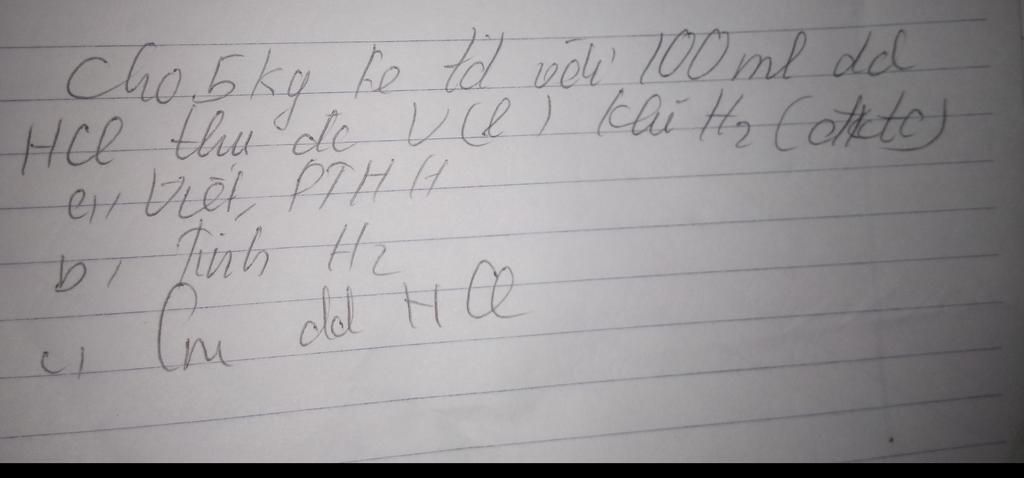 Cho 5 kg Fe td với 100 ml dd
HCl thu dc V(l) khí H2 (đktc)
a, Viết, PTHH
b, Tính H2
c, Cm dd HCl